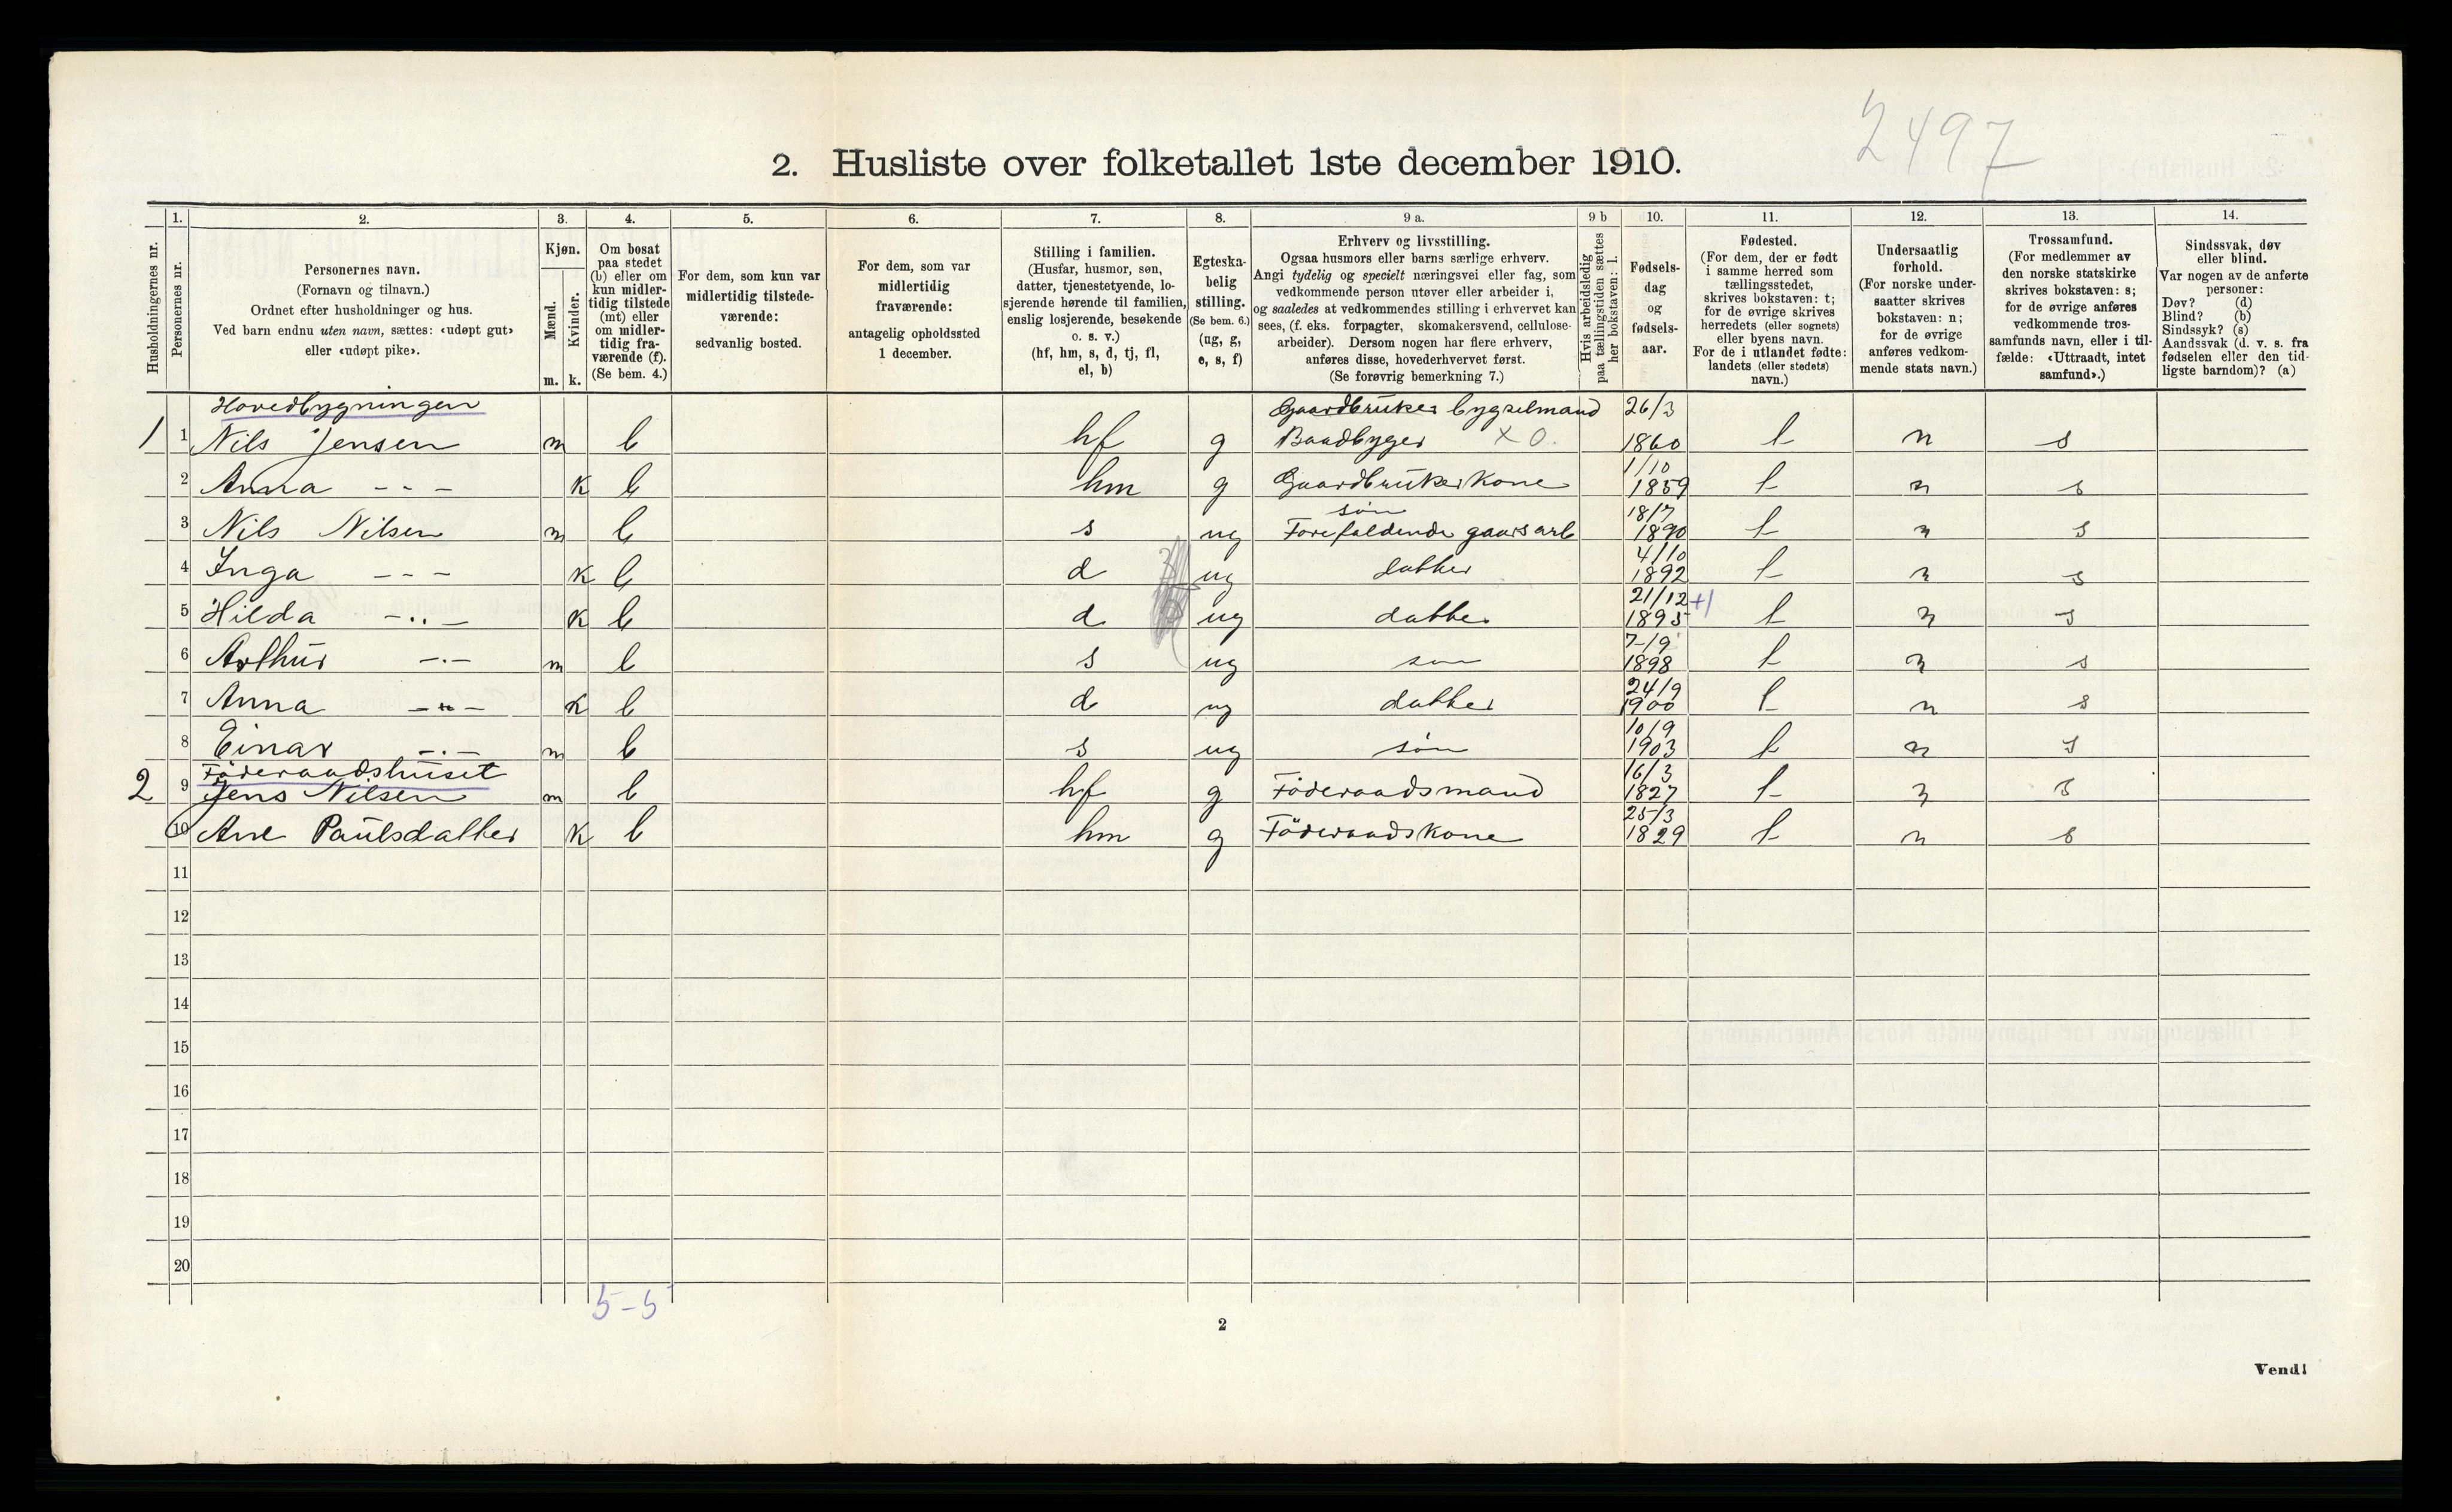 2497
2. Husliste over folketallet 1ste december 1910.
Husholdningernes nr.
1. Personernes nr.
2. Personernes navn. (Fornavn og tilnavn.) Ordnet efter husholdninger og hus. Ved barn endnu uten navn, sættes: «udøpt gut» eller «udøpt pike».
3. Kjøn. Mænd. m. Kvinder. k.
4. Om bosat paa stedet (b) eller om kun midlertidig tilstede (mt) eller om midlertidig fraværende (f). (Se bem. 4.)
5. For dem, som kun var midlertidig tilstedeværende: sedvanlig bosted.
6. For dem, som var midlertidig fraværende: antagelig opholdssted 1 december.
7. Stilling i familien. (Husfar, husmor, søn, datter, tjenestetyende, losjerende hørende til familien, enslig losjerende, besøkende o. s. v.) (hf, hm, s, d, tj, fl, el, b)
8. Egteskabelig stilling. (Se bem. 6.) (ug, g, e, s, f)
9 a. Erhverv og livsstilling. Ogsaa husmors eller barns særlige erhverv. Angi tydelig og specielt næringsvei eller fag, som vedkommende person utøver eller arbeider i, og saaledes at vedkommendes stilling i erhvervet kan sees, (f. eks. forpagter, skomakersvend, cellulosearbeider). Dersom nogen har flere erhverv, anføres disse, hovederhvervet først. (Se forøvrig bemerkning 7.)
9 b Hvis arbeidsledig paa tællingstiden sættes her bokstaven: l.
10. Fødselsdag og fødselsaar.
11. Fødested. (For dem, der er født i samme herred som tællingsstedet, skrives bokstaven: t; for de øvrige skrives herredets (eller sognets) eller byens navn. For de i utlandet fødte: landets (eller stedets) navn.)
12. Undersaatlig forhold. (For norske undersaatter skrives bokstaven: n; for de øvrige anføres vedkommende stats navn.)
13. Trossamfund. (For medlemmer av den norske statskirke skrives bokstaven: s; for de øvrige anføres vedkommende trossamfunds navn, eller i tilfælde: «Uttraadt, intet samfund».)
14. Sindssvak, døv eller blind. Var nogen av de anførte personer: Døv? (d) Blind? (b) Sindssyk? (s) Aandssvak (d. v. s. fra fødselen eller den tidligste barndom)? (a)
Hovedbygningen Gaardbruker bygselmand 26/3
1 1 Nils Jensen m b hf g Baadbyger x 0. 1860 t n s
2 Anna - - - k b hm g Gaardbruker kone 1/10 1859 t n s
3 Nils Nilsen m b s ug søn Forefaldende gaardsarb 18/7 1890 t n s
4 Inga - - - k b d ug datter 4/10 1892 t n s
5 Hilda - .. - k b d ug datter 21/12 1895 +1 t n s
6 Arthur - . - m b s ug søn 7/9 1898 t n s
7 Anna - " - k b d ug datter 24/9 1900 t n s
8 Einar - . - m b s ug søn 10/9 1903 t n s
Föderaadshuset
2 9 Jens Nilsen m b hf g Föderaadsmand 16/3 1827 t n s
10 Ane Paulsdatter k b hm g Föderaadskone 25/3 1829 t n s
11
12
13
14
15
16
17
18
19
20
5-5
2
Vend!